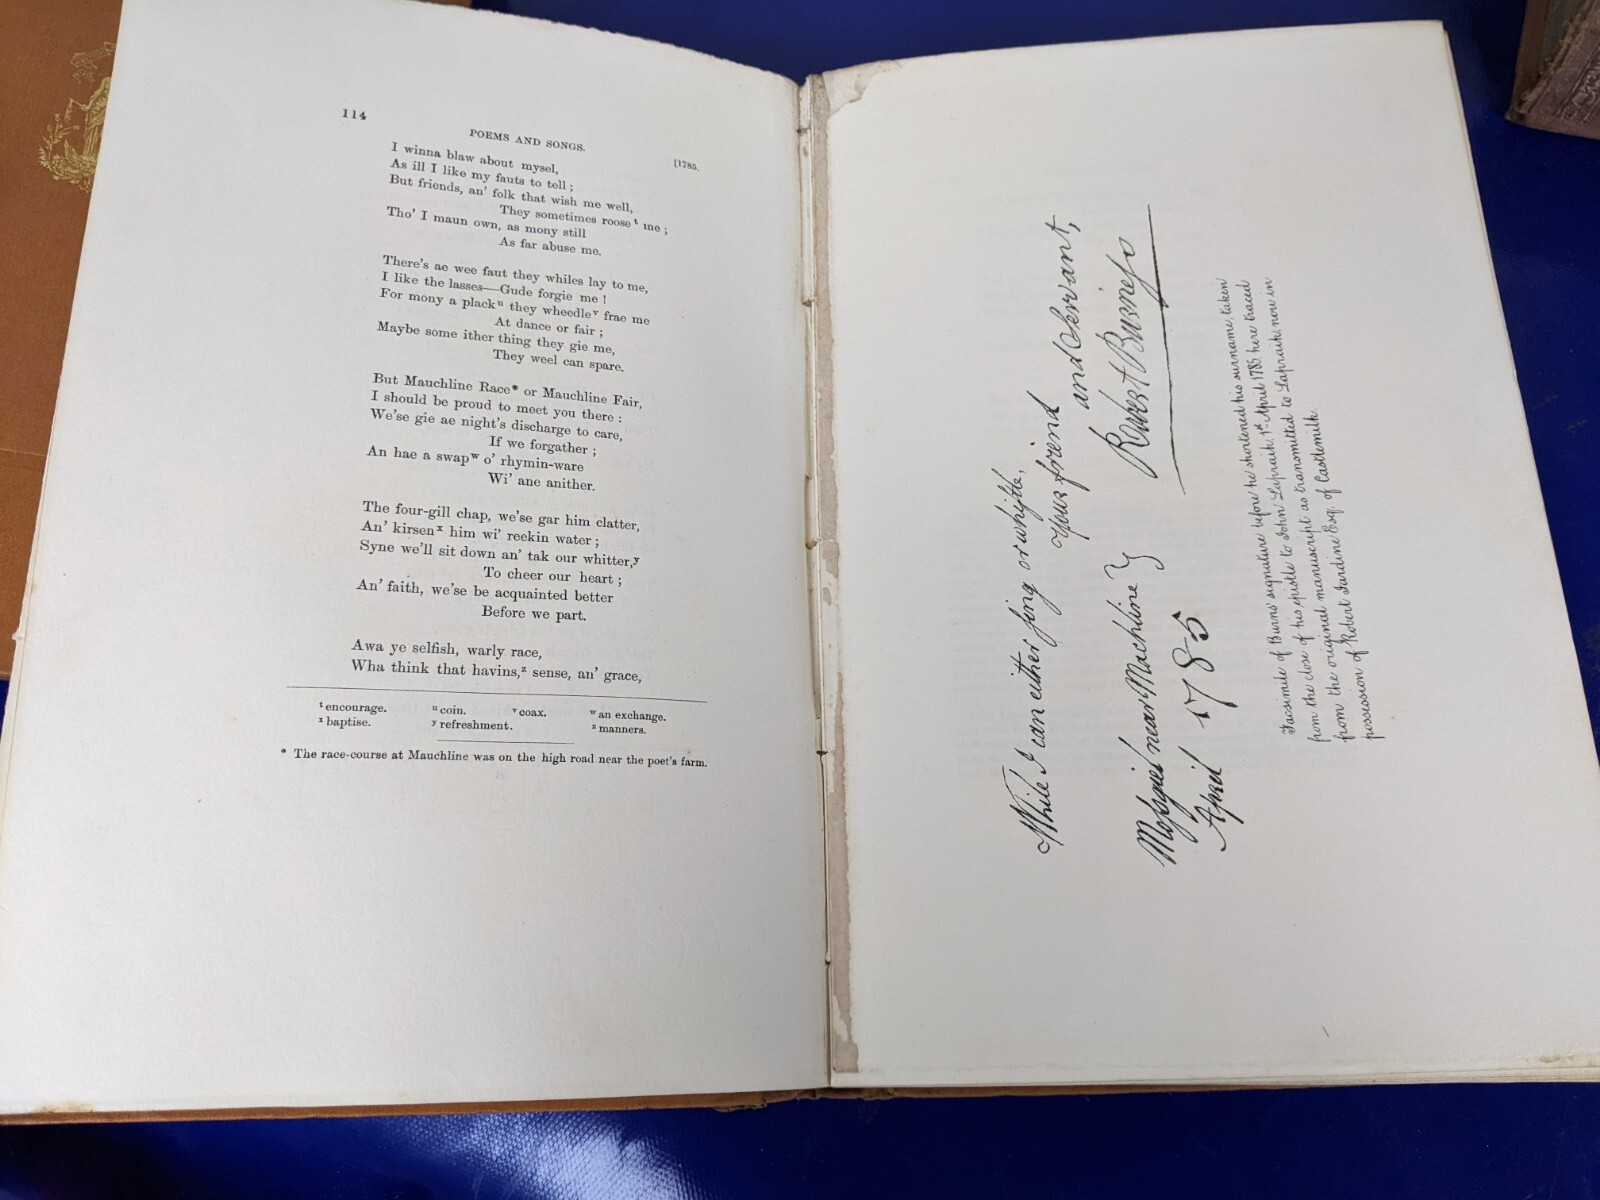 114
POEMS AND SONGS.
[1785.
I winna blaw about mysel,
As ill I like my fauts to tell;
But friends, an' folk that wish me well,
They sometimes roose ᵗ me;
Tho' I maun own, as mony still
As far abuse me.
There's ae wee faut they whiles lay to me,
I like the lasses—Gude forgie me!
For mony a plack ᵘ they wheedle ᵛ frae me
At dance or fair;
Maybe some ither thing they gie me,
They weel can spare.
But Mauchline Race* or Mauchline Fair,
I should be proud to meet you there:
We'se gie ae night's discharge to care,
If we forgather;
An hae a swap ʷ o' rhymin-ware
Wi' ane anither.
The four-gill chap, we'se gar him clatter,
An' kirsen ˣ him wi' reekin water;
Syne we'll sit down an' tak our whitter,ʸ
To cheer our heart;
An' faith, we'se be acquainted better
Before we part.
Awa ye selfish, warly race,
Wha think that havins,ᶻ sense, an' grace,
ᵗ encourage. ᵘ coin. ᵛ coax. ʷ an exchange.
ˣ baptise. ʸ refreshment. ᶻ manners.
* The race-course at Mauchline was on the high road near the poet's farm.
While I can either sing or whistle,
Your friend
and Servant,
Robert Burness
Mossgiel near Machline
April 1785
Facsimile of Burns' signature before he shortened his surname, taken
from the close of his epistle to John Lapraik, 1st April 1785, here traced
from the original manuscript as transmitted to Lapraik, now in
possession of Robert Jardine Esq. of Castlemilk.